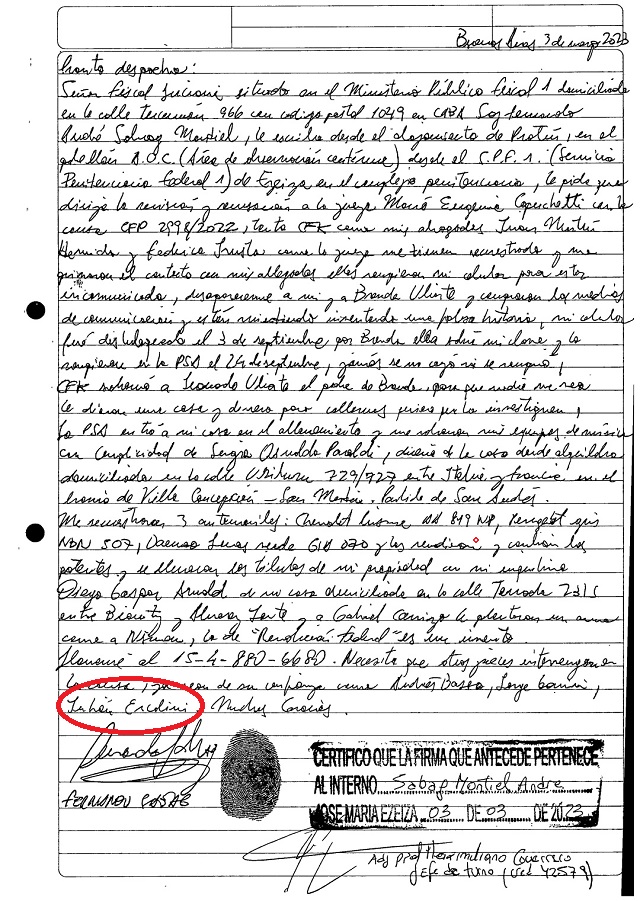 Buenos Aires 3 de marzo 2023
Pronto despacho:
Señor Fiscal Luciani, situado en el Ministerio Público Fiscal 1 domiciliado
en la calle Tucumán 966 con codigo postal 1049 en CABA Soy Fernando
André Sabag Montiel, le escribo desde el alojamiento de , en el
pabellón A.O.C. (Área de observación ) desde el S.P.F. 1. (Servicio
Penitenciario Federal 1) de Ezeiza en el complejo penitenciario, le pido que
dirija la revisión y recusación a la jueza María Eugenia Capuchetti con la
causa CFP 2998/2022, tanto CFK como mis abogados Juan Martín
Hermida y Federico como la jueza me tienen secuestrado y me
privaron el contacto con mis allegados ellos rompieron mi celular para estar
incomunicado, desaparecerme a mi y a Brenda Uliarte y compraron los medios
de comunicación y están mintiendo inventando una falsa historia, mi celular
fué desbloqueado el 3 de septiembre por Brenda ella sabía mi clave y lo
rompieron en la PSA el 24 de septiembre, jamás se me cayó ni se rompió,
CFK a Leonardo Uliarte el padre de Brenda, para que nadie me vea
le dieron una casa y dinero para callarnos quiero que lo investiguen,
La PSA entró a mi casa en el allanamiento y me robaron mis equipos de música
con complicidad de Sergio Osvaldo Paroldi, dueño de la casa donde alquilaba
domiciliada en la calle Uriburu 729/727 entre Italia y Francia en el
barrio de Villa Concepción - San Martín. Partido de San Andrés.
Me secuestraron 3 automoviles: Chevrolet AA 819 NP, Peugeot gris
NDN 507, Daewoo verde GIB 070 y los vendieron y cambian las
patentes y se llevaron los titulos de mi propiedad con mi inquilino
Diego Gaspar Arnold de mi casa domiciliada en la calle Terrada 2315
entre y Alvarez Jonte y a Gabriel Carrizo le plantaron un arma
como a Nisman, lo de "Revolución Federal" es un invento.
Llamame al 15-4-880-6680. Necesito que otros jueces intervengan en
la causa, ya sean de su confianza como Andrés Basso, Jorge Gorini,
Julián Ercolini, .
FERNANDO SABAG
CERTIFICO QUE LA FIRMA QUE ANTECEDE PERTENECE
AL INTERNO Sabag Montiel Andre
JOSE MARIA EZEIZA 03 DE 03 DE 2023
Adj Prof Maximiliano Guerrero
Jefe de turno (cred 42579)